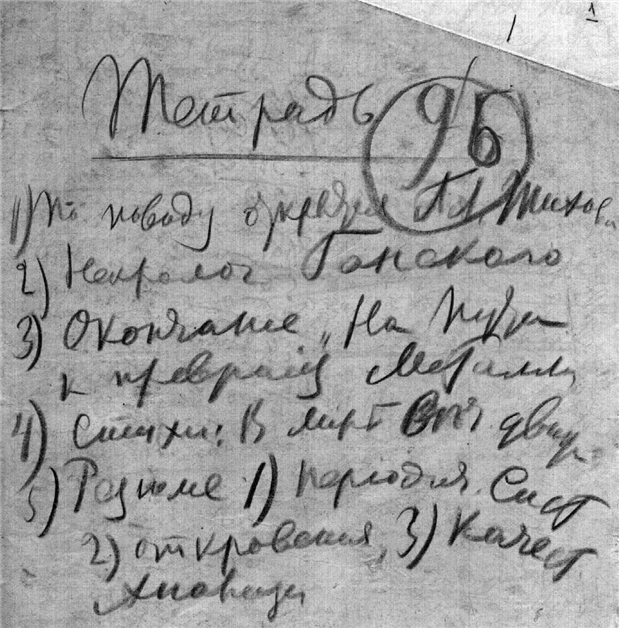 1
Тетрадь 9Б
1) По поводу открытия Г. А. Тихова
2) Некролог Ганского
3) Окончание "На пути
к превращ Металл
4) Стихи: В мире
5) Резюме 1) периодич. Сист
2) откровения, 3) Качест